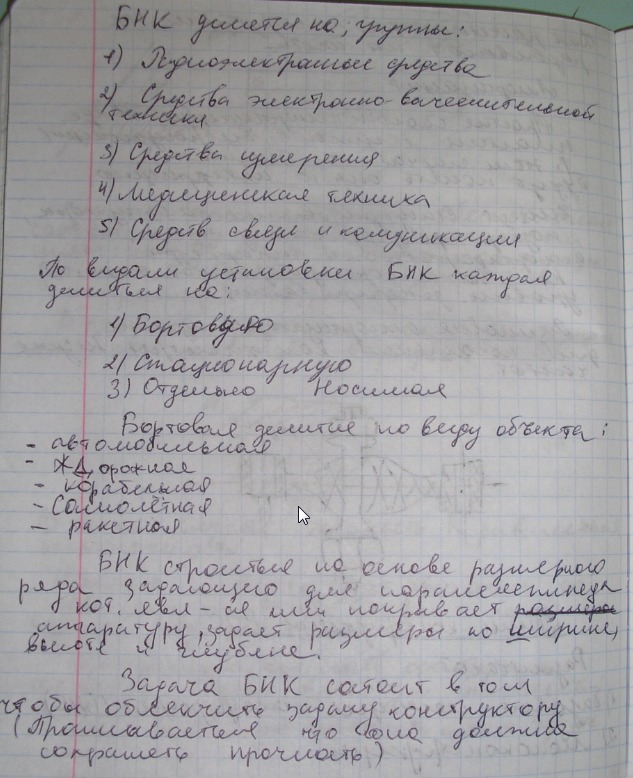 БНК делется на, группы:
1) Радиоэлектронные средства
2) Средства электронно-вачеслительной
техники
3) Средства измерения
4) Медеценская техника
5) Средств связи и комуникации
По видали установки БНК каждая
делиться на:
1) Бортовую
2) Стационарную
3) Отдельно Носимая
Бортовая делится по виду объекта:
- автомобильная
- ЖДорожная
- корабельная
- Самолётная
- ракетная
БНК строиться на основе размерного
ряда задающего для
кот. явл-ся или покрывает размеры
аппаратуру, задает размеры по ширине,
высоте и глубине.
Задача БНК состоит в том
чтобы облекчить задачу конструктору
что она должна
сохранять прочность)